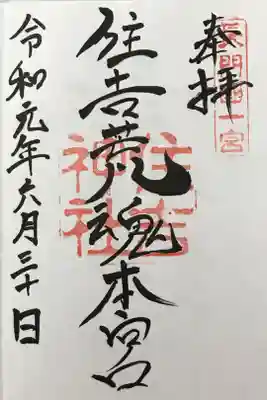 長門國一宮
奉拝
住吉荒魂本宮
住吉神社
令和元年六月三十日